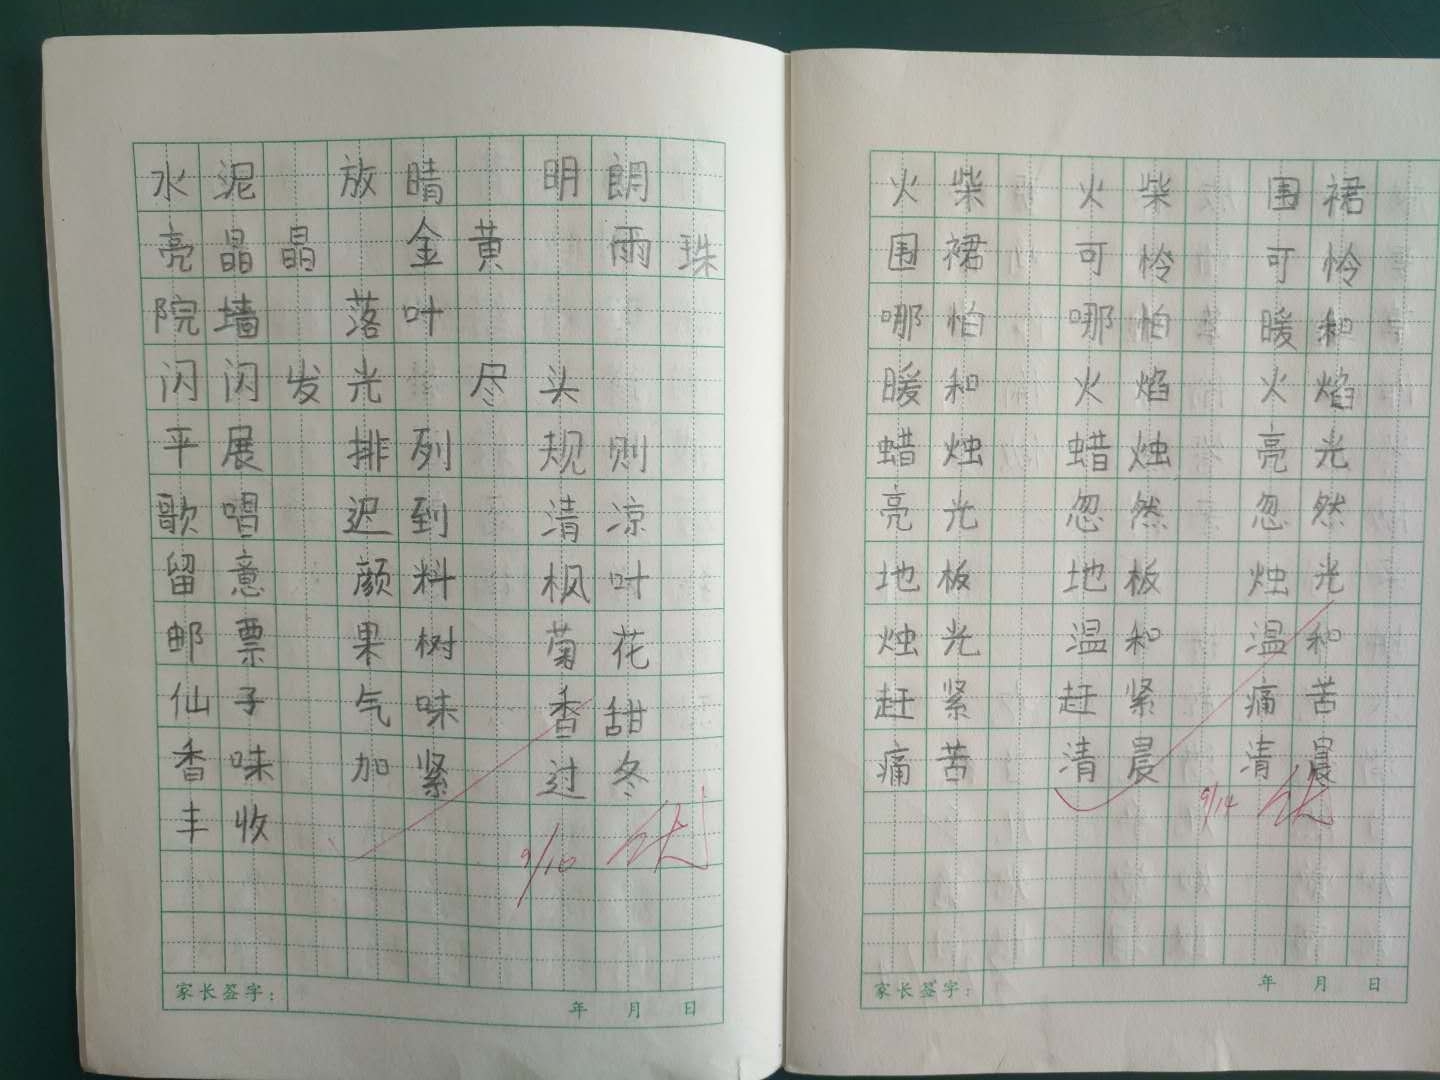 水泥 放晴 明朗
亮晶晶 金黄 雨珠
院墙 落叶
闪闪发光 尽头
平展 排列 规则
歌唱 迟到 清凉
留意 颜料 枫叶
邮票 果树 菊花
仙子 气味 香甜
香味 加紧 过冬
丰收
9/10 优
家长签字： 年 月 日
火柴 火柴 围裙
围裙 可怜 可怜
哪怕 哪怕 暖和
暖和 火焰 火焰
蜡烛 蜡烛 亮光
亮光 忽然 忽然
地板 地板 烛光
烛光 温和 温和
赶紧 赶紧 痛苦
痛苦 清晨 清晨
9/14 优
家长签字： 年 月 日